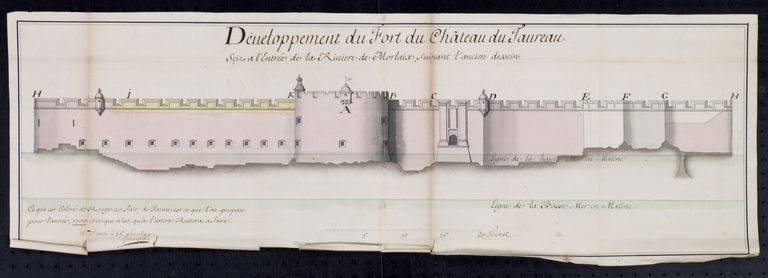 Developpement du Fort du Château du Taureau
Seis a l'Entrée de la Riviere de Morlaix suivant l'ancien dessein
H I K A B C D E F G H
Ligne de la haute Mer en Maline
Ligne de la Basse Mer en Maline
Ce qui est Coloré de Rouge est Fait, de Jaune est ce que l'on propose
pour l'année, 1700, et ce qui n'est qu'a l'ancre Restera a faire
5 10 15 20